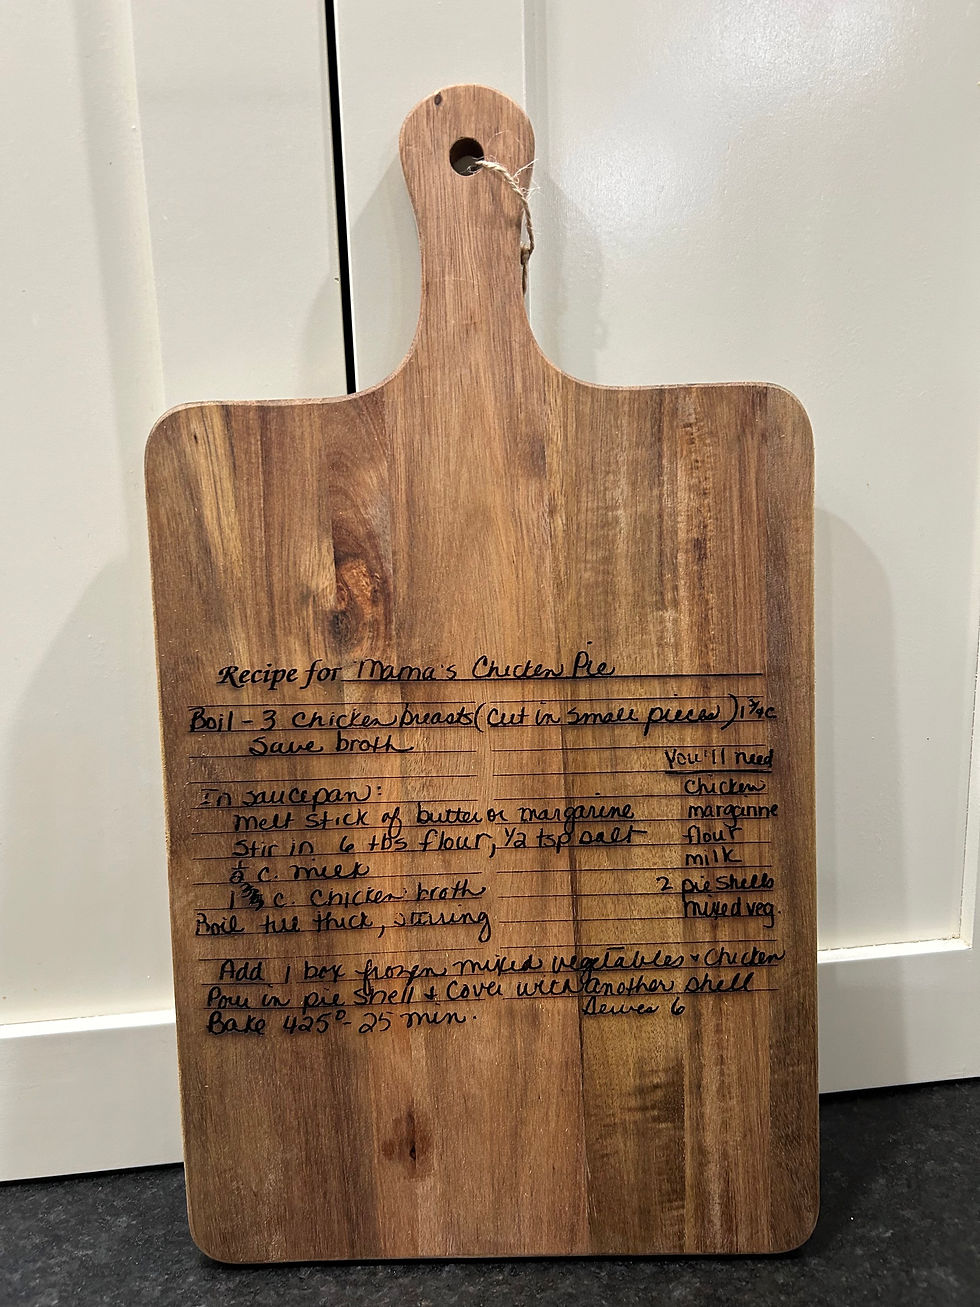 Recipe for Mama's Chicken Pie
Boil - 3 chicken breasts (cut in small pieces) 1 3/4 c
Save broth
You'll need
chicken
In saucepan:
melt stick of butter or margarine
margarine
Stir in 6 tbs flour, 1/2 tsp salt
flour
c. milk
milk
1 c. chicken broth
2 pie shells
Boil till thick, stirring
mixed veg.
Add 1 box frozen mixed vegetables + chicken
Pour in pie shell + cover with another shell
Bake 425° - 25 min.
Serves 6